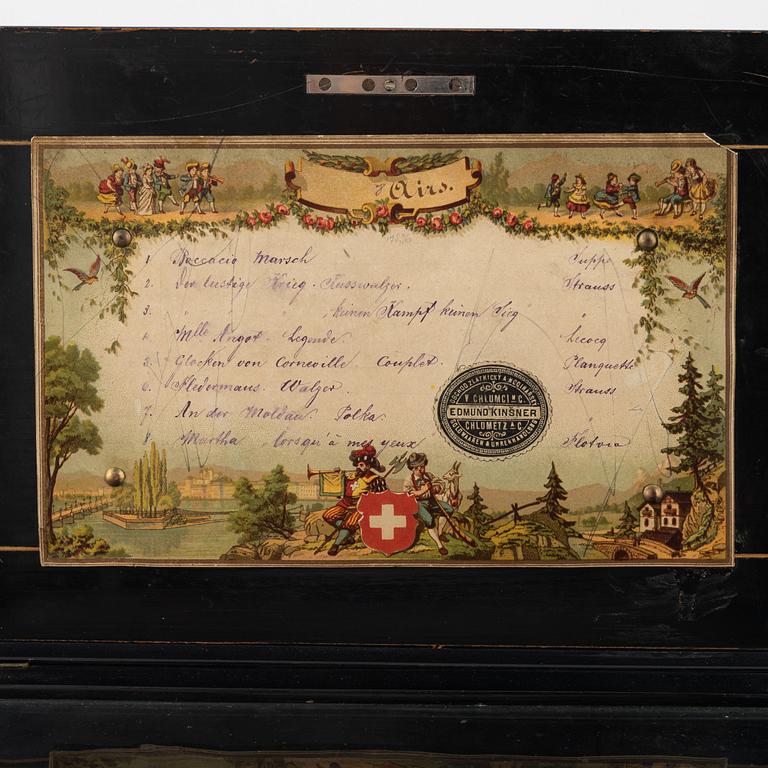 8 Airs.
1. Boccacio Marsch Suppe
2. Der lustige Krieg. Kusswalzer. Strauss
3. " " keinen Kampf keinen Sieg "
4. Mlle Angot. Legende. Lecocq
5. Glocken von Corneville. Couplet. Planquette
6. Fledermaus. Walzer. Strauss
7. An der Moldau. Polka. "
8. Martha lorsqu'à mes yeux Flotow
V CHLUMCI N. C.
EDMUND KINŠNER
CHLUMETZ A. C.